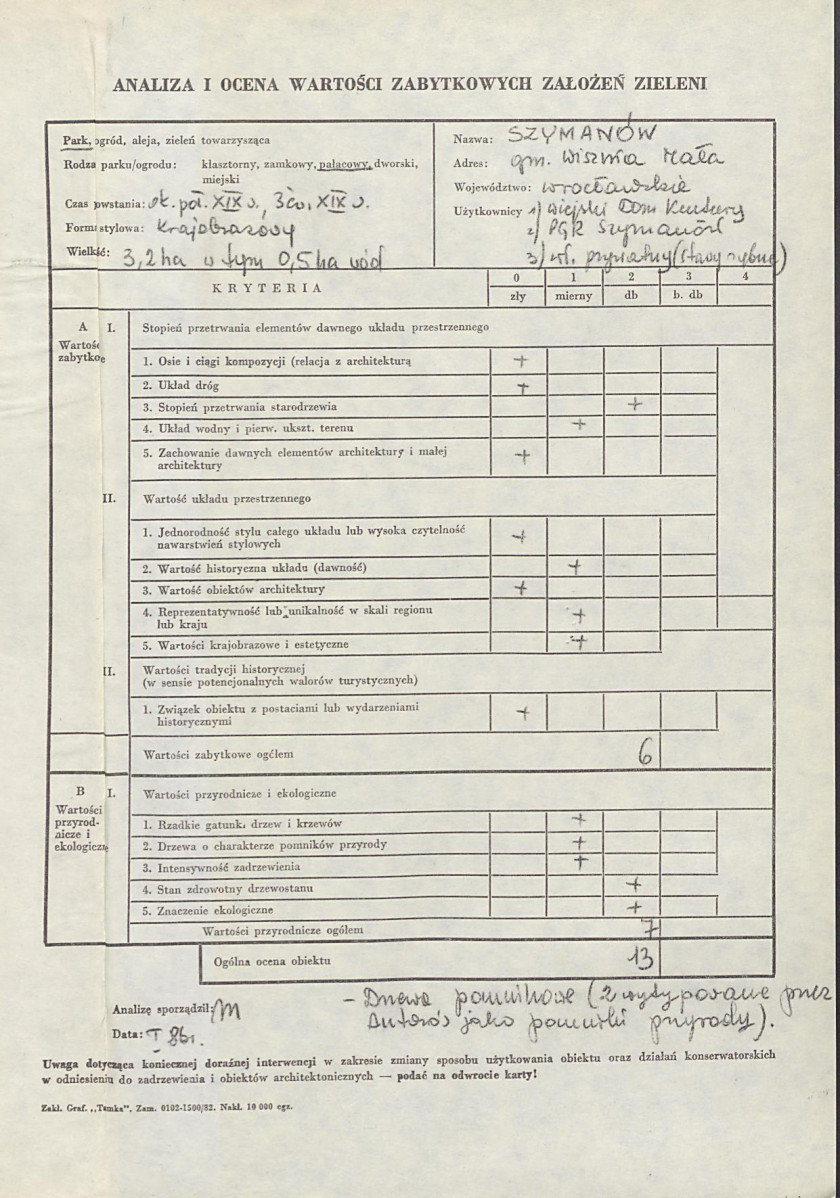 ANALIZA I OCENA WARTOŚCI ZABYTKOWYCH ZAŁOŻEŃ ZIELENI
Park, ogród, aleja, zieleń towarzysząca
Rodza parku/ogrodu: klasztorny, zamkowy, pałacowy, dworski,
miejski
Czas pwstania: ok. poł. XIX w., 3 ćw. XIX w.
Form: stylowa: Krajobrazowy
Wielkść: 3,2 ha w tym 0,5 ha wód
Nazwa: SZYMANÓW
Adres: gm. Wisznia Mała
Województwo: wrocławskie
Użytkownicy 1) Wiejski Dom Kultury
2/ PGR Szymanów
3) wł. prywatny (stawy rybne)
KRYTERIA
0 1 2 3 4
zły mierny db b. db
A I. Stopień przetrwania elementów dawnego układu przestrzennego
Wartośc
zabytkoe
1. Osie i ciągi kompozycji (relacja z architekturą +
2. Układ dróg +
3. Stopień przetrwania starodrzewia +
4. Układ wodny i pierw. ukszt. terenu +
5. Zachowanie dawnych elementów architektury i małej
architektury +
II. Wartość układu przestrzennego
1. Jednorodność stylu całego układu lub wysoka czytelność
nawarstwień stylowych +
2. Wartość historyczna układu (dawność) +
3. Wartość obiektów architektury +
4. Reprezentatywność lub unikalność w skali regionu
lub kraju +
5. Wartości krajobrazowe i estetyczne +
II. Wartości tradycji historycznej
(w sensie potencjonalnych walorów turystycznych)
1. Związek obiektu z postaciami lub wydarzeniami
historycznymi +
Wartości zabytkowe ogółem 6
B I. Wartości przyrodnicze i ekologiczne
Wartości
przyrod-
nicze i
ekologiczne
1. Rzadkie gatunk. drzew i krzewów +
2. Drzewa o charakterze pomników przyrody +
3. Intensywność zadrzewienia +
4. Stan zdrowotny drzewostanu +
5. Znaczenie ekologiczne +
Wartości przyrodnicze ogółem 7
Ogólna ocena obiektu 13
- Drzewa pomnikowe (2 wytypowane przez
Autorów jako pomniki przyrody).
Analizę sporządził:
Data: I 86r.
Uwaga dotycząca koniecznej doraźnej interwencji w zakresie zmiany sposobu użytkowania obiektu oraz działań konserwatorskich
w odniesieniu do zadrzewienia i obiektów architektonicznych — podać na odwrocie karty!
Zakł. Graf. „Tamka". Zam. 0102-1500/82. Nakł. 10 000 egz.